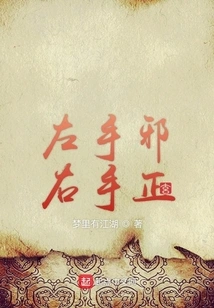 左手邪
右手正
梦里有江湖 ◎ 著